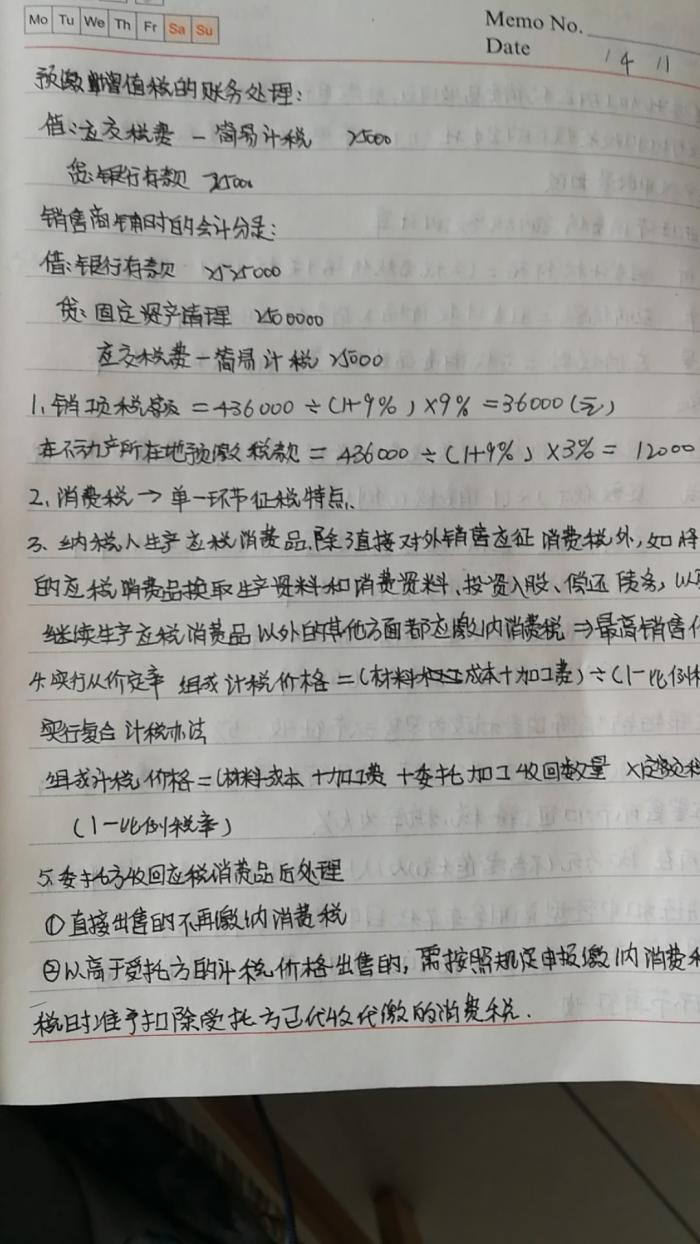 Mo Tu We Th Fr Sa Su
Memo No.
Date 14 11
预缴增值税的账务处理:
借:应交税费 — 简易计税 25000
贷:银行存款 25000
销售商铺时的会计分录:
借:银行存款 525000
贷:固定资产清理 500000
应交税费—简易计税 25000
1、销项税额 = 436000 ÷ (1+9%) × 9% = 36000 (元)
在不动产所在地预缴税款 = 436000 ÷ (1+9%) × 3% = 12000
2、消费税 → 单一环节征税特点、
3、纳税人生产应税消费品,除了直接对外销售应征消费税外,如将
的应税消费品换取生产资料和消费资料、投资入股、偿还债务,以
继续生产应税消费品以外的其他方面都应缴纳消费税 ⇒ 最高销售
4、实行从价定率 组成计税价格 = (材料成本+加工费) ÷ (1-比例
实行复合计税办法
组成计税价格 = (材料成本 + 加工费 + 委托加工收回数量 × 定额
(1-比例税率)
5、委托方收回应税消费品后处理
①直接出售的不再缴纳消费税
②以高于受托方的计税价格出售的,需按照规定申报缴纳消费
税时准予扣除受托方已代收代缴的消费税.